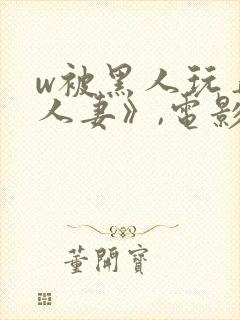 w被黑人玩
人妻》,电影
董開寶